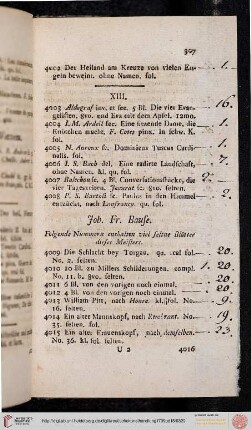 307
4002 Der Heiland am Kreuze von vielen En- 1.
geln beweint. ohne Namen. fol.
XIII.
4003 Aldegraf inv. et sec. 5 Bl. Die vier Evan- 16.
gelisten. gvo. und Eva mit dem Apfel. 12mo.
4004 J. M. Ardell sec. Eine sitzende Dame, die 1.
Knötchen macht. F. Cotes pinx. in schw. K.
fol.
4005 N. Auroux sc. Dominicus Tuscus Cardi- 1.
nalis. fol.
4006 J. S. Bach del. Eine radirte Landschaft, 7.
ohne Namen. kl. qu. fol.
4007 4 Bl. Conversationsstücke, die 2.
vier Tageszeiten. sc. 8vo. selten.
4008 P. S. Bartoli sc. Paulus in den Himmel 2.
entzückt, nach Lanfrancy. qu. fol.
Joh. Fr. Bause.
Folgende Nummern enthalten viel seltne Blätter
dieses Meisters.
4009 Die Schlacht bey Torgau. qu. fol 20.
No. 2. selten.
4010 10 Bl. zu Millers Schilderungen. compl. 1. 20.
No. 11. b. gvo. selten.
4011 6 Bl. von den vorigen noch einmal. 20.
4012 4 Bl. von den vorigen noch einmal. 20.
4013 William Pitt, nach Hoare. kl. fol. No. 9.
16. selten.
4014 Ein alter Mannskopf, nach Rembrant. No. 19.
35. selten. fol.
4015 Ein alter Frauenkopf, nach demselben. 23.
No. 36. kl. fol. selten.
U 2 4016